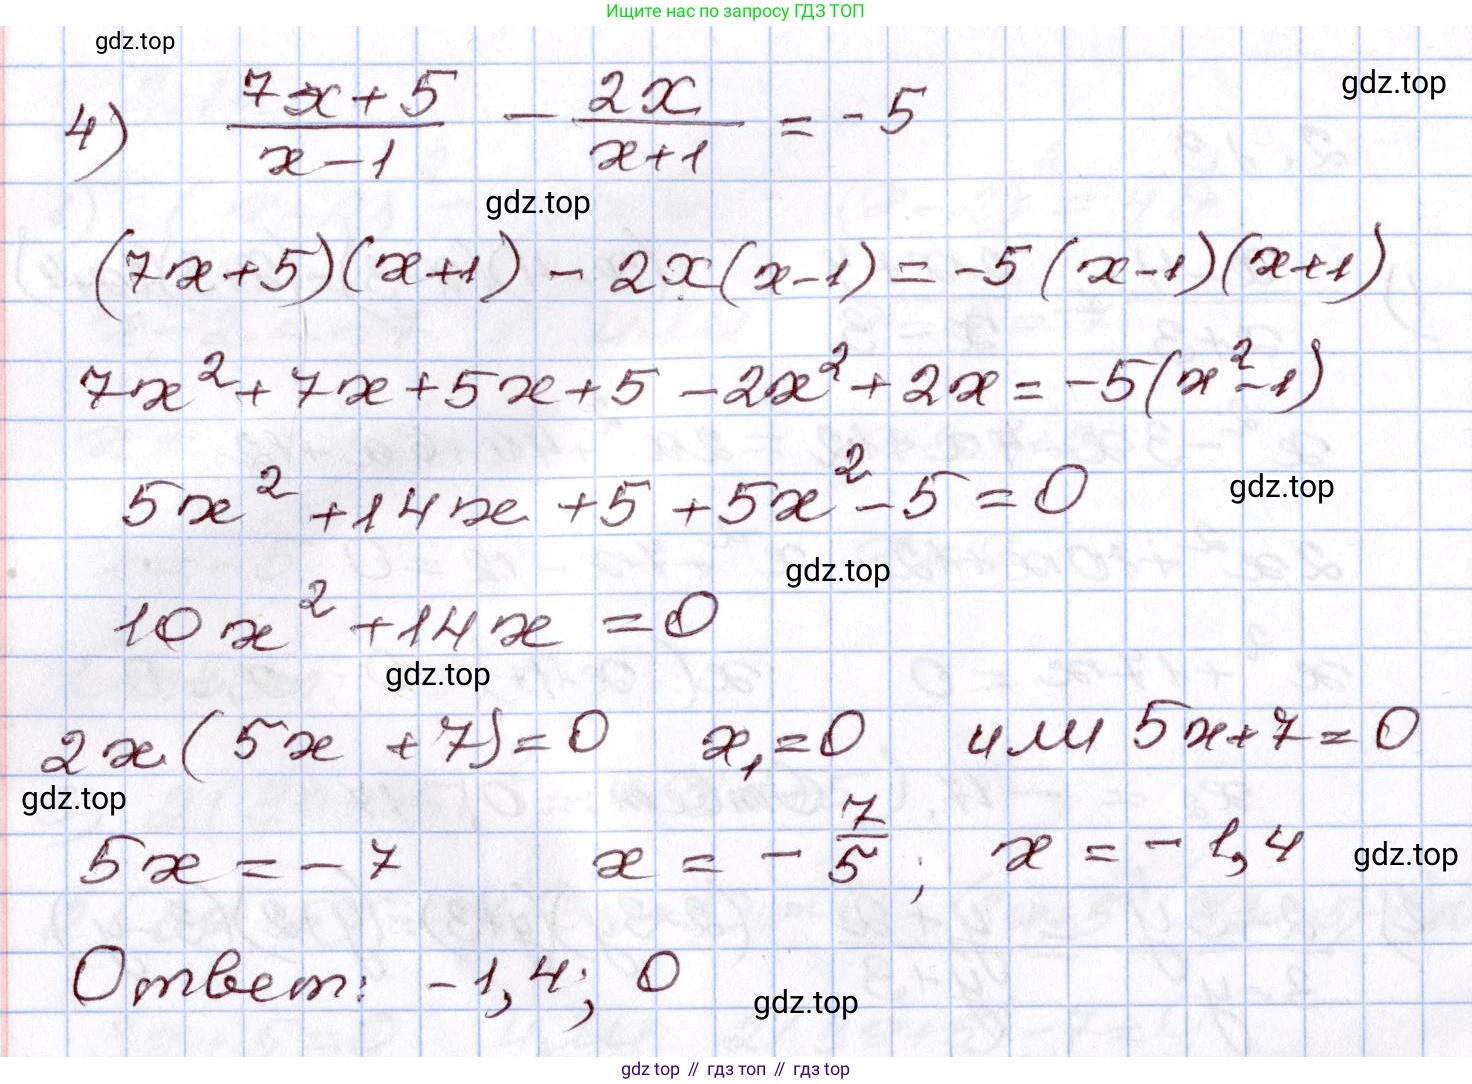 Ищите нас по запросу ГДЗ ТОП
gdz.top
gdz.top
4) (7x+5)/(x-1) - 2x/(x+1) = -5
gdz.top
(7x+5)(x+1) - 2x(x-1) = -5(x-1)(x+1)
7x² + 7x + 5x + 5 - 2x² + 2x = -5(x²-1)
5x² + 14x + 5 + 5x² - 5 = 0
gdz.top
gdz.top
10x² + 14x = 0
gdz.top
2x(5x + 7) = 0 x₁ = 0 или 5x+7 = 0
gdz.top
5x = -7 x = -7/5; x = -1,4
gdz.top
Ответ: -1,4; 0
gdz.top
gdz top // гдз топ // gdz top